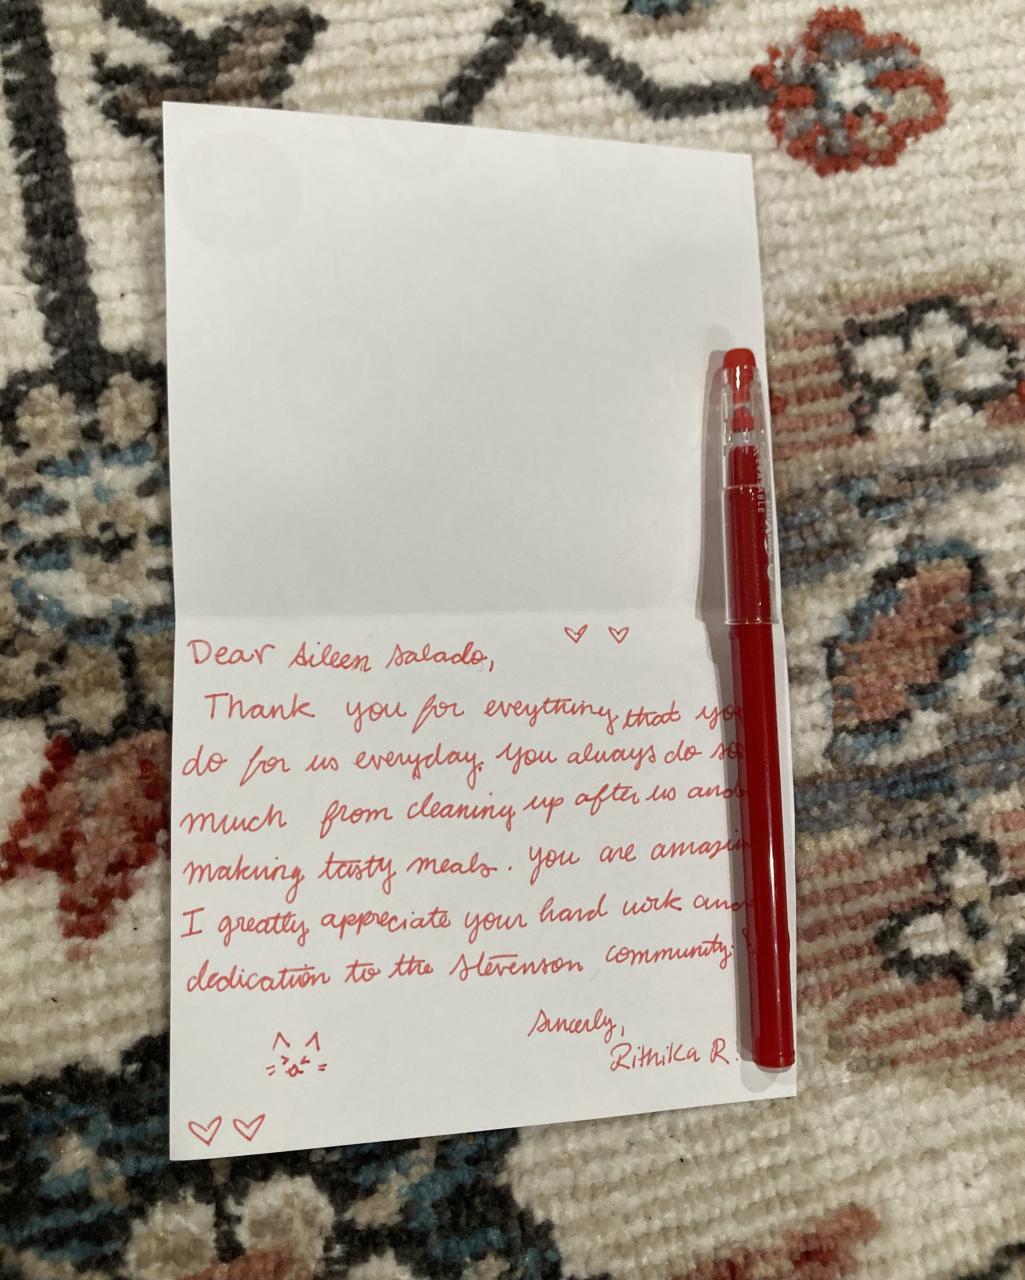 Dear Aileen Salado,
Thank you for eveything that you
do for us everyday. You always do so
much from cleaning up after us and
making tasty meals. You are amazin
I greatly appreciate your hard work and
dedication to the Stevenson community.
Sincerly,
Rithika R.
ERASABLE